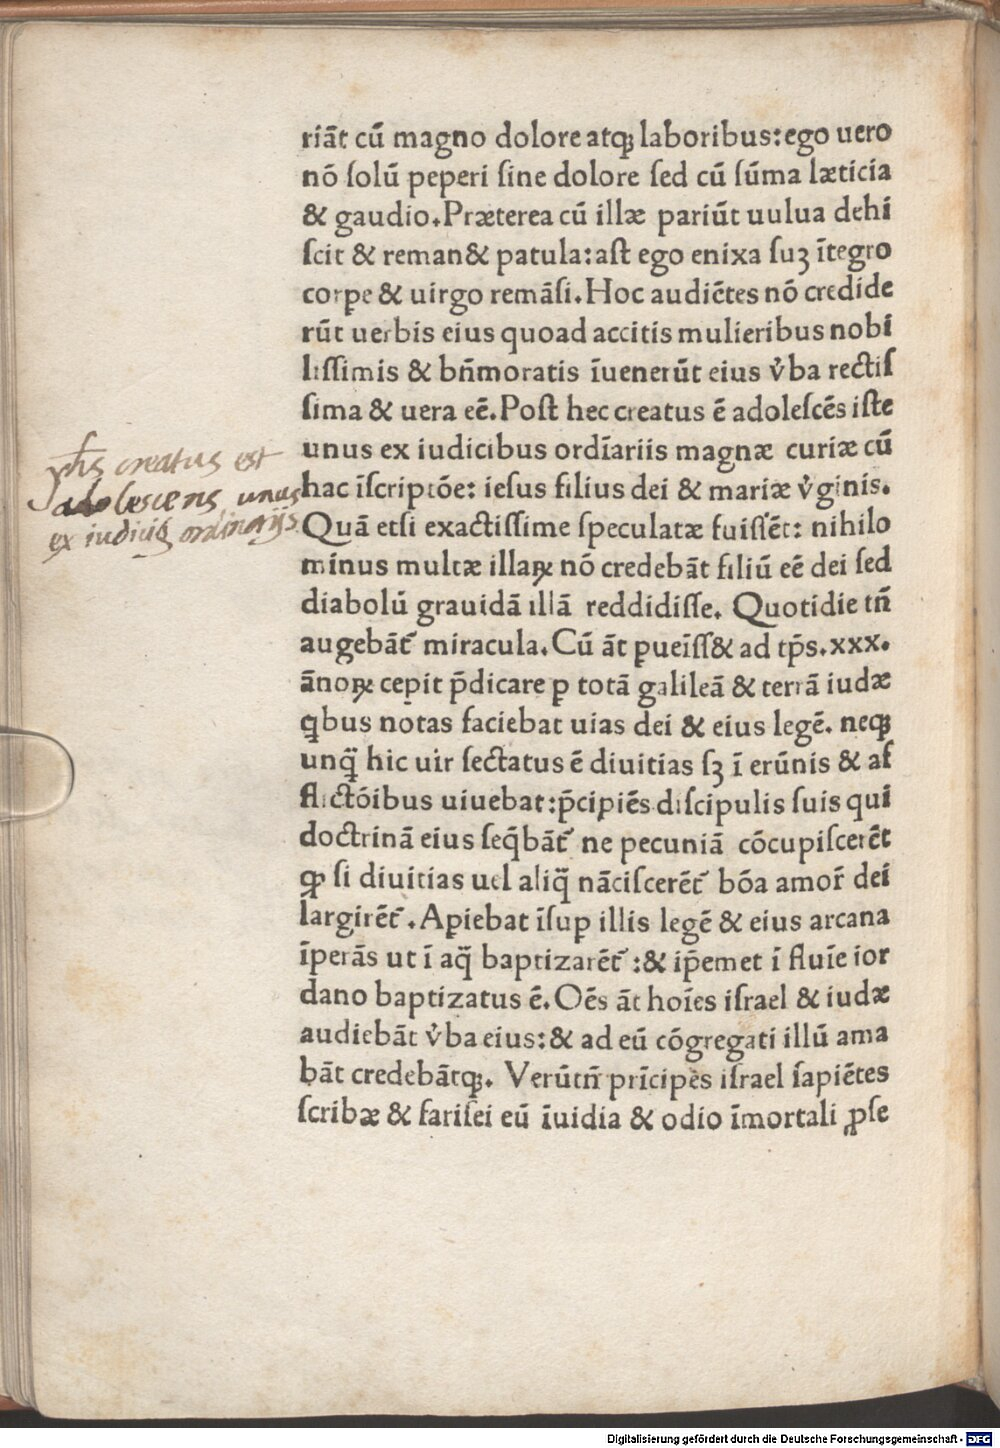 riāt cū magno dolore atqꝫ laboribus: ego uero
nō ſolū peperi ſine dolore ſed cū ſūma læticia
& gaudio. Præterea cū illæ pariūt uulua dehi
ſcit & reman& patula: aſt ego enixa ſuꝫ ītegro
corpe & uirgo remāſi. Hoc audiētes nō credide
rūt uerbis eius quoad accitis mulieribus nobi
liſſimis & bn̄moratis īuenerūt eius v̓ba rectiſ
ſima & uera eē. Poſt hec creatus ē adoleſcēs iſte
unus ex iudicibus ordīariis magnæ curiæ cū
hac īſcriptōe: ieſus filius dei & mariæ v̓ginis.
yh̄s creatus est
adolescens unus
ex iudiciꝫ ordinarijs
Quā etſi exactiſſime ſpeculatæ fuiſſēt: nihilo
minus multæ illaꝝ nō credebāt filiū eē dei ſed
diabolū grauidā illā reddidiſſe. Quotidie tn̄
augebāt᷑ miracula. Cū āt pueīſſ& ad tp̄s. xxx.
ānoꝝ cepit p̄dicare ꝑ totā galileā & terrā iudæ
qͥbus notas faciebat uias dei & eius legē. neqꝫ
unqͣ̄ hic uir ſectatus ē diuitias ſꝫ ī erūnis & af
flictōibus uiuebat: p̄cipiēs diſcipulis ſuis qui
doctrinā eius ſeq̄bāt᷑ ne pecuniā cōcupiſcerēt
ꝙ ſi diuitias uel aliqͣ̄ nāciſcerēt᷑ bōa amor̄ dei
largirēt᷑. Aꝑiebat īſuꝑ illis legē & eius arcana
īperās ut ī aqͣ̄ baptizarēt᷑ : & ip̄emet ī fluīe ior
dano baptizatus ē. Oēs āt hoīes iſrael & iudæ
audiebāt v̓ba eius: & ad eū cōgregati illū ama
bāt credebātqꝫ. Verūtn̄ prīcipes iſrael ſapiētes
ſcribæ & fariſei eū īuidia & odio īmortali ꝓſe
Digitalisierung gefördert durch die Deutsche Forschungsgemeinschaft - DFG